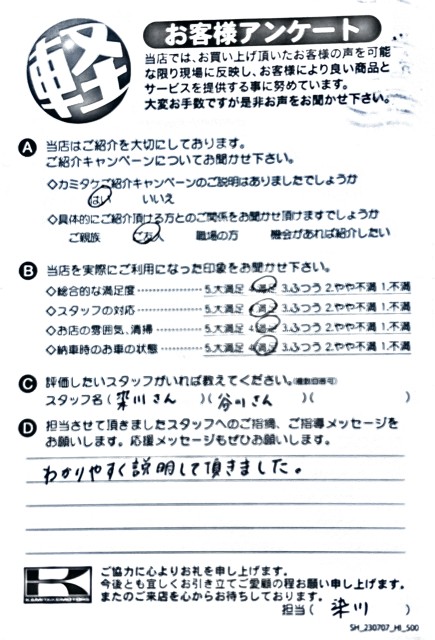 軽
お客様アンケート
当店では、お買い上げ頂いたお客様の声を可能
な限り現場に反映し、お客様により良い商品と
サービスを提供する事に努めています。
大変お手数ですが是非お声をお聞かせ下さい。
A 当店はご紹介を大切にしております。
ご紹介キャンペーンについてお聞かせ下さい。
◇カミタケご紹介キャンペーンのご説明はありましたでしょうか
はい いいえ
◇具体的にご紹介頂ける方とのご関係をお聞かせ頂けますでしょうか
ご親族 ご友人 職場の方 機会があれば紹介したい
B 当店を実際にご利用になった印象をお聞かせ下さい。
◇総合的な満足度 5.大満足 4.満足 3.ふつう 2.やや不満 1.不満
◇スタッフの対応 5.大満足 4.満足 3.ふつう 2.やや不満 1.不満
◇お店の雰囲気、清掃 5.大満足 4.満足 3.ふつう 2.やや不満 1.不満
◇納車時のお車の状態 5.大満足 4.満足 3.ふつう 2.やや不満 1.不満
C 評価したいスタッフがいれば教えてください。(複数回答可)
スタッフ名(染川さん)(谷川さん)( )
D 担当させて頂きましたスタッフへのご指摘、ご指導メッセージを
お願いします。応援メッセージもぜひお願いします。
わかりやすく説明して頂きました。
ご協力に心よりお礼を申し上げます。
今後とも宜しくお引き立てご愛顧の程お願い申し上げます。
またのご来店を心からお待ちしております。
KAMITAKEMOTORS
担当(染川)
SH_230707_HI_500